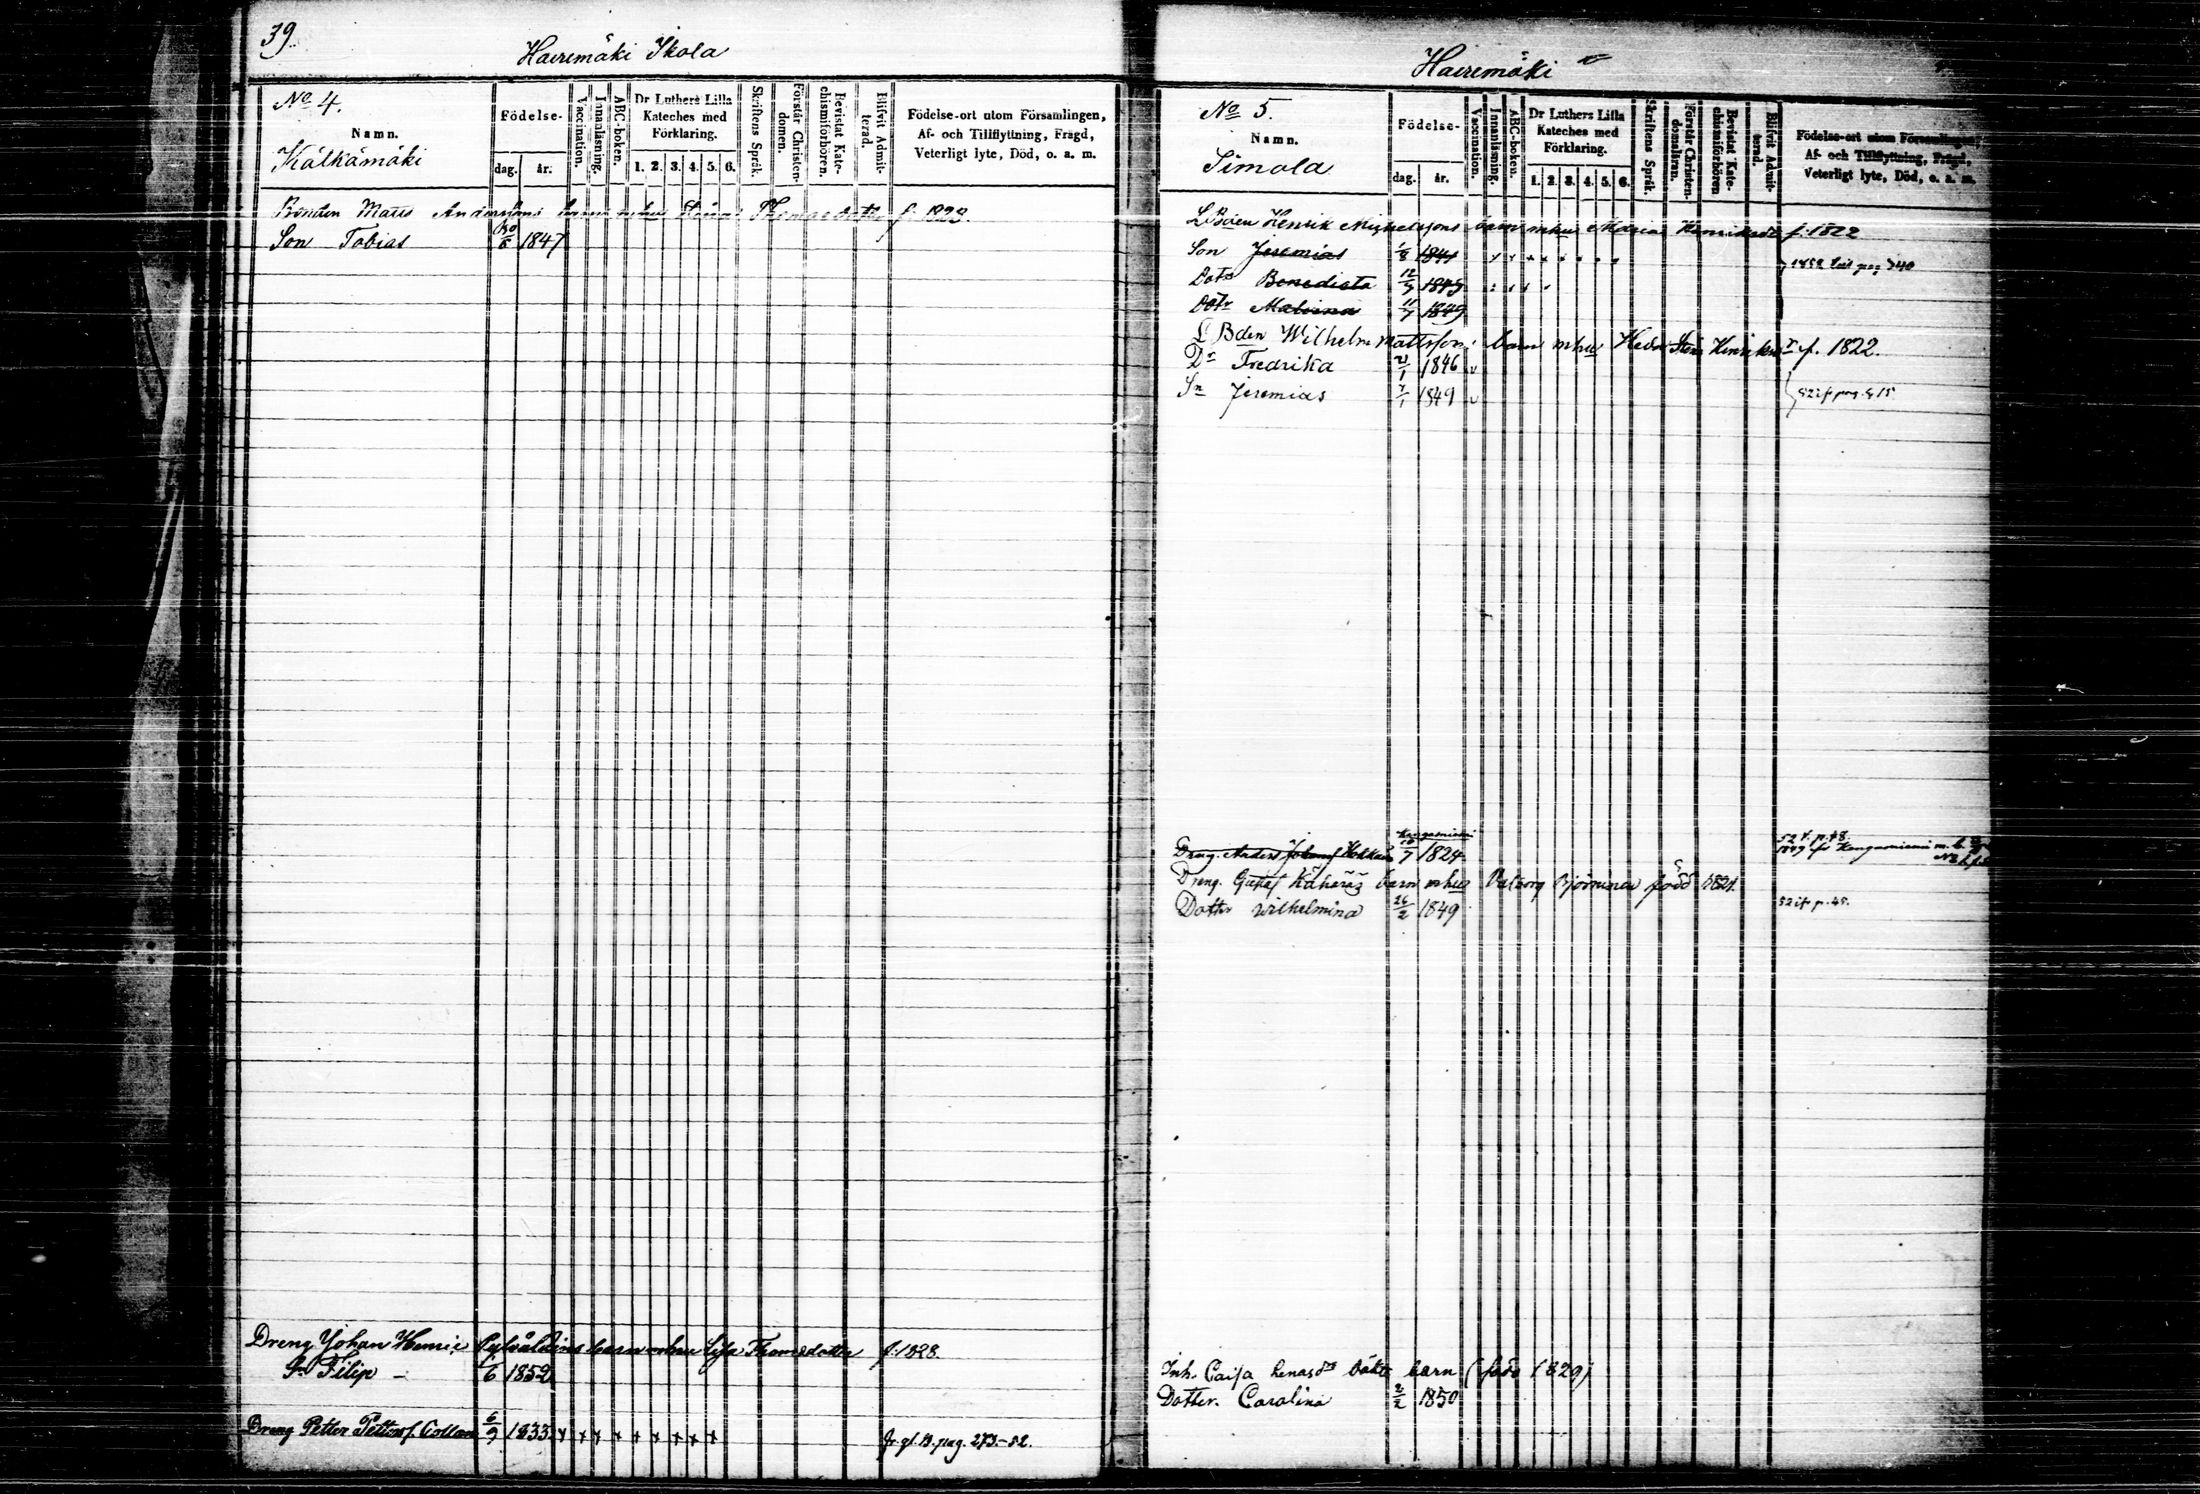 39
Haeremäki Skola
No 4.
Namn.
Kälkämäki
Födelse-
dag. år.
Vaccination.
Innanläsning.
ABC-boken.
Dr Luthers Lilla
Kateches med
Förklaring.
1. 2. 3. 4. 5. 6.
Skriftens Språk.
Förstår Christen-
domen.
Bevistat Kate-
chismiförhören.
Blifvit Admit-
terad.
Födelse-ort utom Församlingen,
Af- och Tillflyttning, Frägd,
Veterligt lyte, Död, o. a. m.
Bonden Matts Anderssons barn mhu Thomasdotter f. 1828.
Son Tobias 30/8 1847
Dreng Johan Henric barn mhu Lisa Thomsdotter f. 1828.
Sn Filip 1/6 1852
Dreng Petter Petters. Collan 6/9 1833 x x x x x x x x
fr. gl. B. pag. 273.-52.
Haeremäki
No 5.
Namn.
Simola
Födelse-
dag. år.
Vaccination.
Innanläsning.
ABC-boken.
Dr Luthers Lilla
Kateches med
Förklaring.
1. 2. 3. 4. 5. 6.
Skriftens Språk.
Förstår Christen-
domsläran.
Bevistat Kate-
chismiförhören
Blifvit Admit-
terad.
Födelse-ort utom Församlingen,
Af- och Tillflyttning, Frägd,
Veterligt lyte, Död, o. a. m.
L Bden Henrik Michelssons barn mhu Maria Henriksdr f. 1822
Son Jeremias 1/8 1841
1852 pag 340
Dotr Benedicta 12/9 1845
Dotr Mathina 11/7 1849
L Bden Wilhelm Mattsson barn mhu Hedv Henriksdr f. 1822.
Dr Fredrika 21/1 1846
Sn Jeremias 7/1 1849
Kangasniemi
Dreng. Anders Johansf Kokkain 10/7 1824
52 f. p. 48.
1849 fr Kangasniemi m. b.
Dreng. Gustaf barn mhu Valborg Björninen född 1821.
Dotter Wilhelmina 26/2 1849
52 if p. 45.
Inh. Caisa Henasdr oäkta barn (född 1829)
Dotter. Carolina 2/2 1850